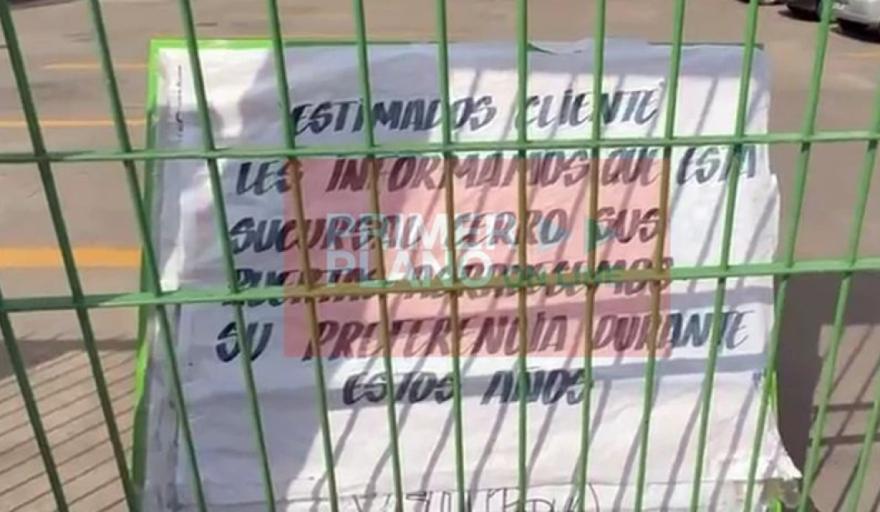 ESTIMADOS CLIENTE
LES INFORMAMOS QUE ESTA
SUCURSAL CERRO SUS
PUERTAS AGRADECEMOS
SU PREFERENCIA DURANTE
ESTOS AÑOS
PRIMER
PLANO